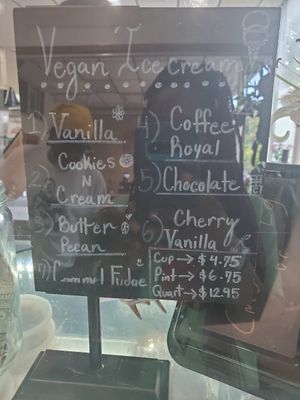 Vegan Ice Cream
1) Vanilla
2) Cookies
N
Cream
3) Butter
Pecan
7) Caramel Fudge
4) Coffee
Royal
5) Chocolate
6) Cherry
Vanilla
Cup → $4.75
Pint → $6.75
Quart → $12.95